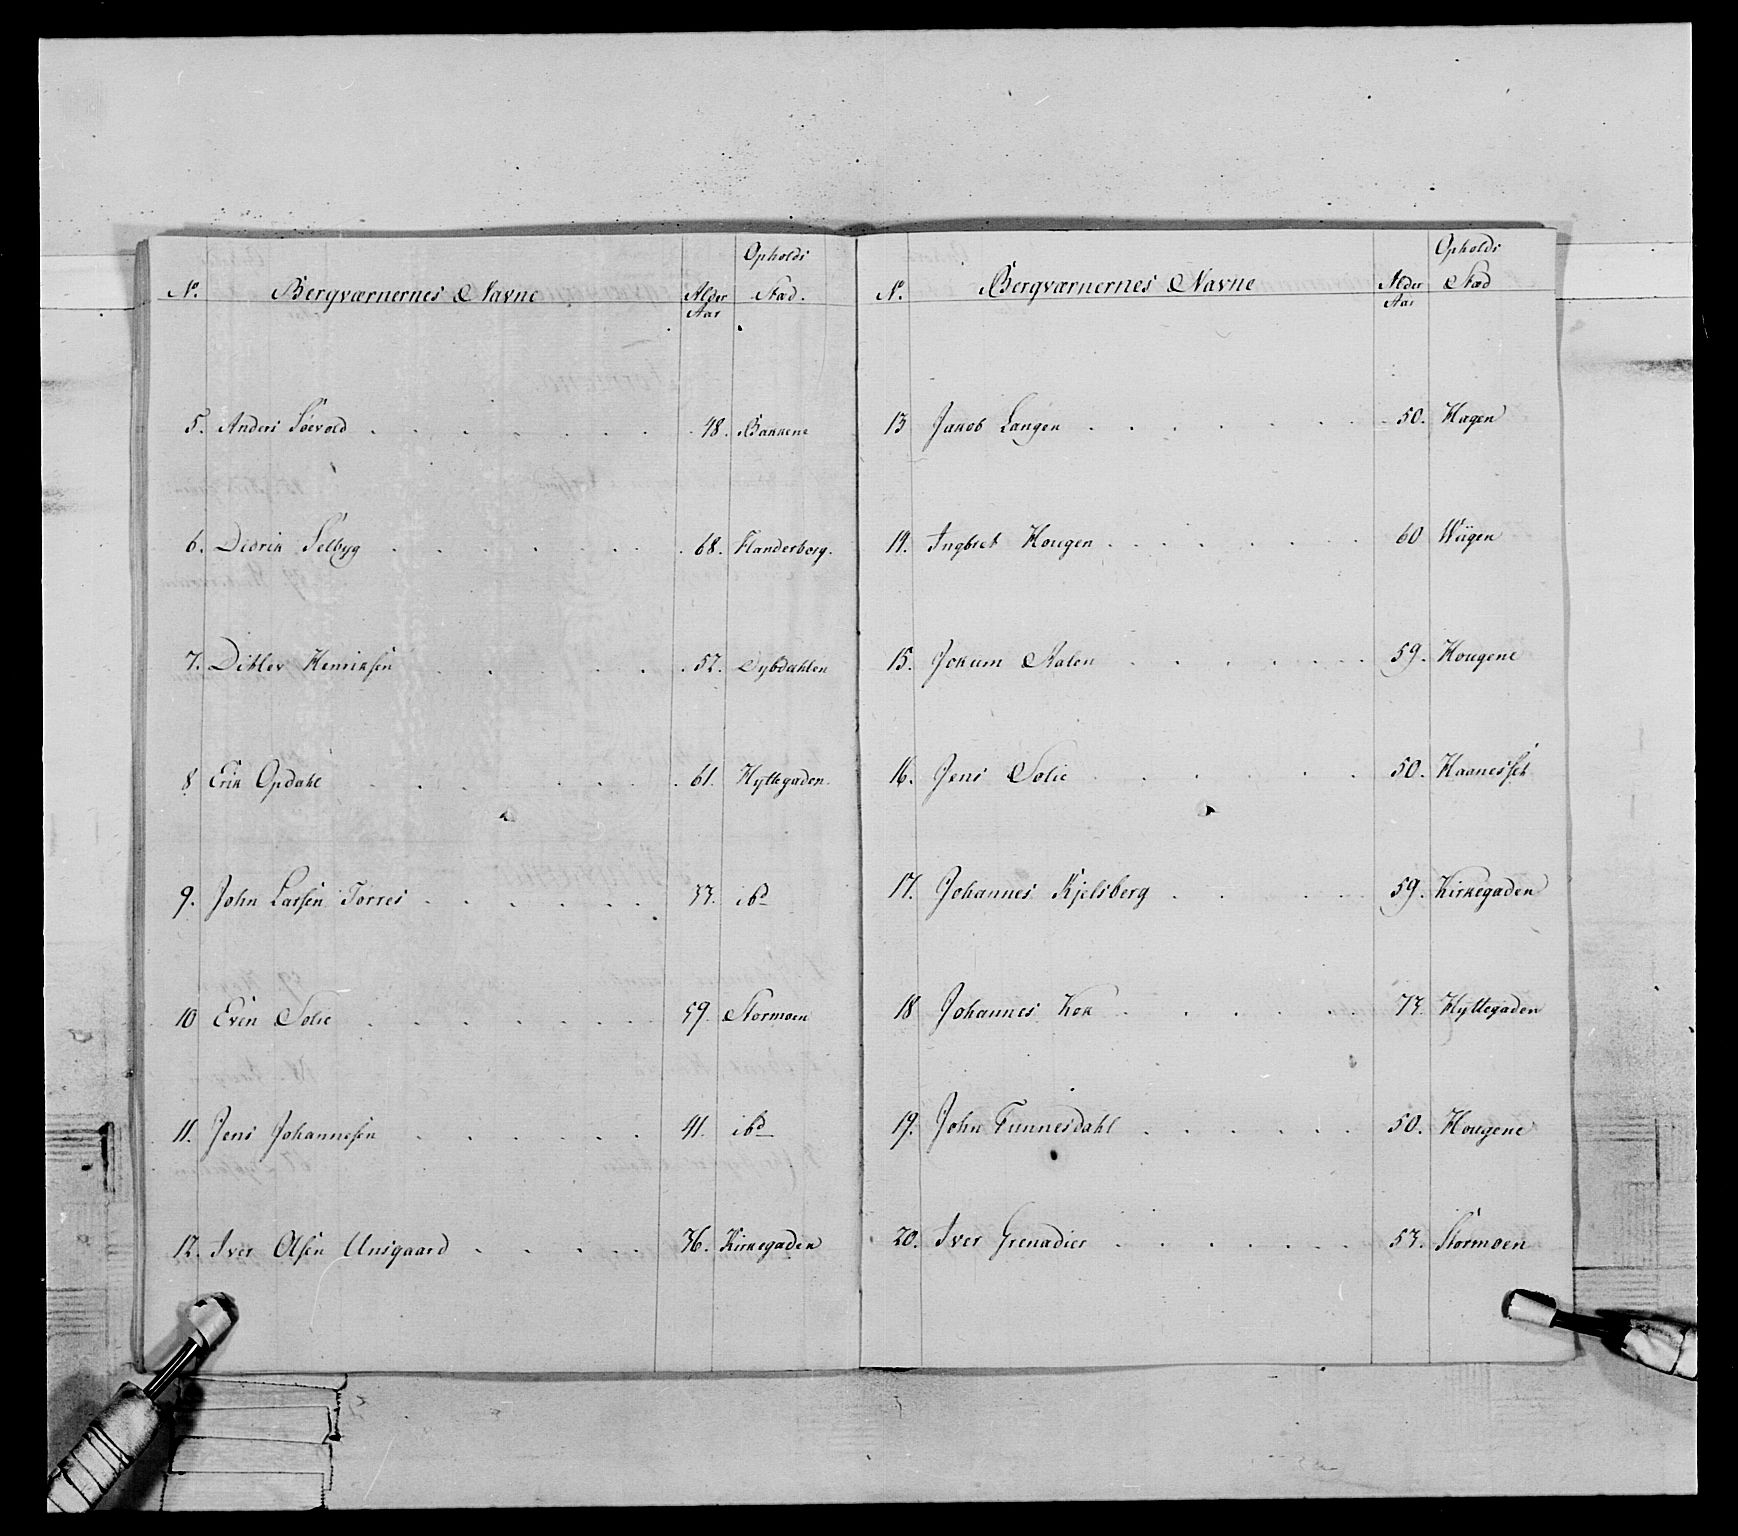 Opholds
No. Bergværnernes Navne Alder Stæd.
Aar
5. Anders Söevold 48. Bakkene
6. Didrik Selbyg 68. Flanderborg.
7. Ditlev Henriksen 52. Dybdahlen
8 Erik Opdahl 61. Hyttegaden.
9. John Larsen Törres 33. ibd
10 Even Solie 59. Stormoen
11. Jens Johannesen 41. ibd
12. Iver Olsen Unsgaard 36. Kirkegaden
Opholds
No. Bergværnernes Navne Alder Stæd
Aar
13 Jakob Langen 50. Hagen
14. Ingbret Hougen 60 Wiigen
15. Jokum Aalen 59. Hougene
16. Jens Solie 50. Haanesset
17. Johannes Kjelsberg 59. Kirkegaden
18 Johannes Kok 73. Hyttegaden
19. John Tunnesdahl 50. Hougene
20. Iver Grenadier 53. Stormoen